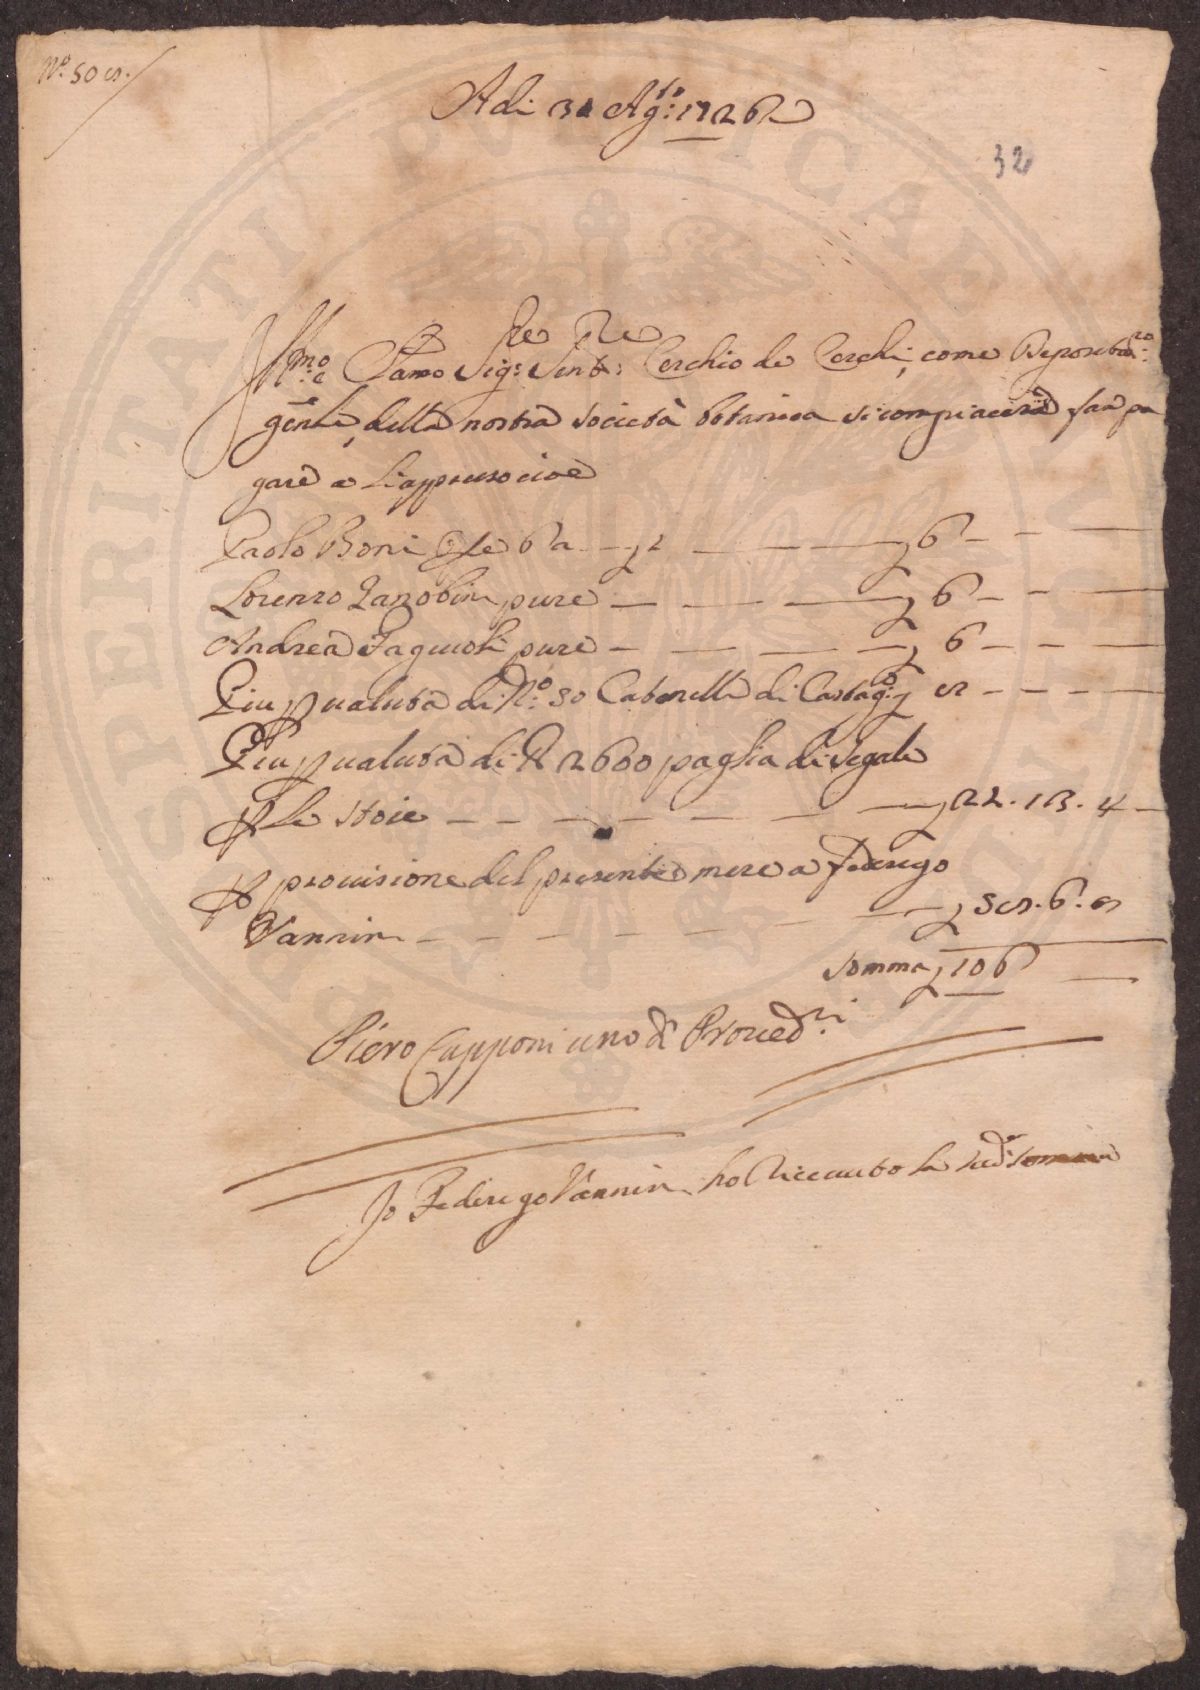 N.o 50
Adi 31 Ag.to 1726
32
Ill.mo e Cl.mo Sig.re Sen.re Cerchio de Cerchi, come Depositar.o
gen.le della nostra società botanica si compiacerà far pa
gare a l'appresso cioè
Paolo Boni 6 a 6
Lorenzo Zanobini pure 6
Andrea Fagiuoli pure 6
Piu p valuta di N.o 50 Catenelle di Castag.o
Piu p valuta di 2600 paglia di segale
p le stoie 22.13.4
p provisione del presente mese a Federigo
Vannini
somma 106
Piero Capponi uno d Proved.ri
Io Federigo Vannini ho riceuuto la sud.a somma
PROSPERITATI PVBLICAE